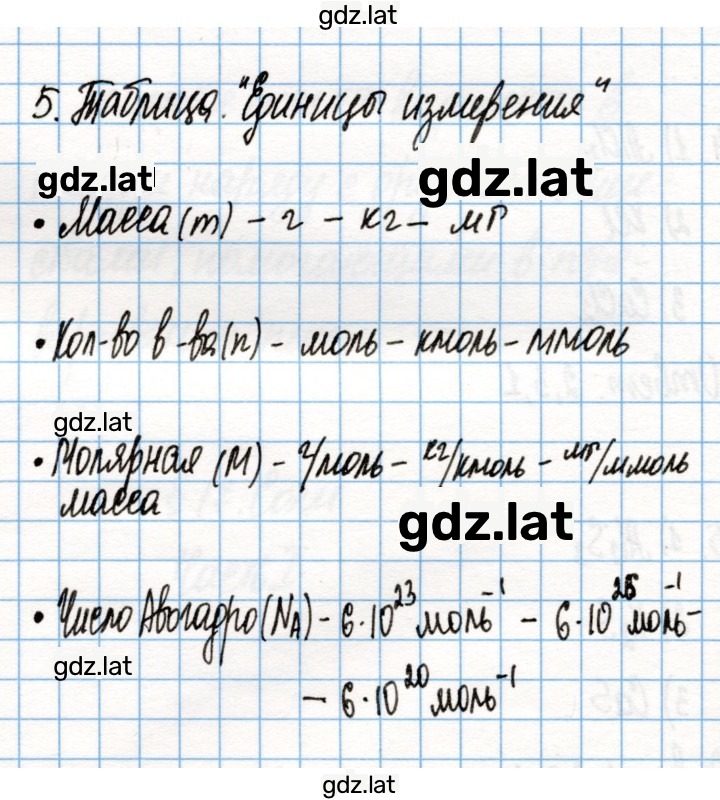 gdz.lat
5. Таблица. "Единицы измерения"
gdz.lat gdz.lat
• Масса (m) – г – кг – мг
• Кол-во в-ва (n) – моль – кмоль – ммоль
gdz.lat
• Молярная (M) – г/моль – кг/кмоль – мг/ммоль
масса
gdz.lat
• Число Авогадро (N_A) – 6·10²³ моль⁻¹ – 6·10²⁶ моль⁻¹ –
gdz.lat
– 6·10²⁰ моль⁻¹
gdz.lat